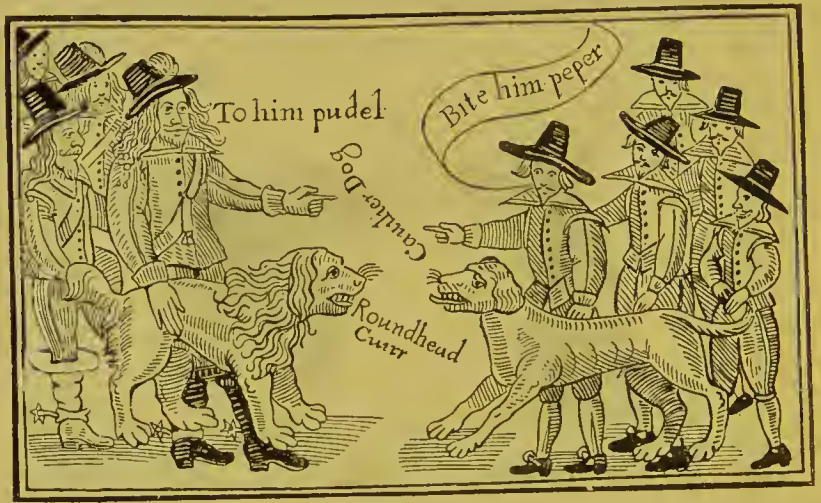 To him pudel
Bite him peper
Caualier Dog
Roundhead
Curr